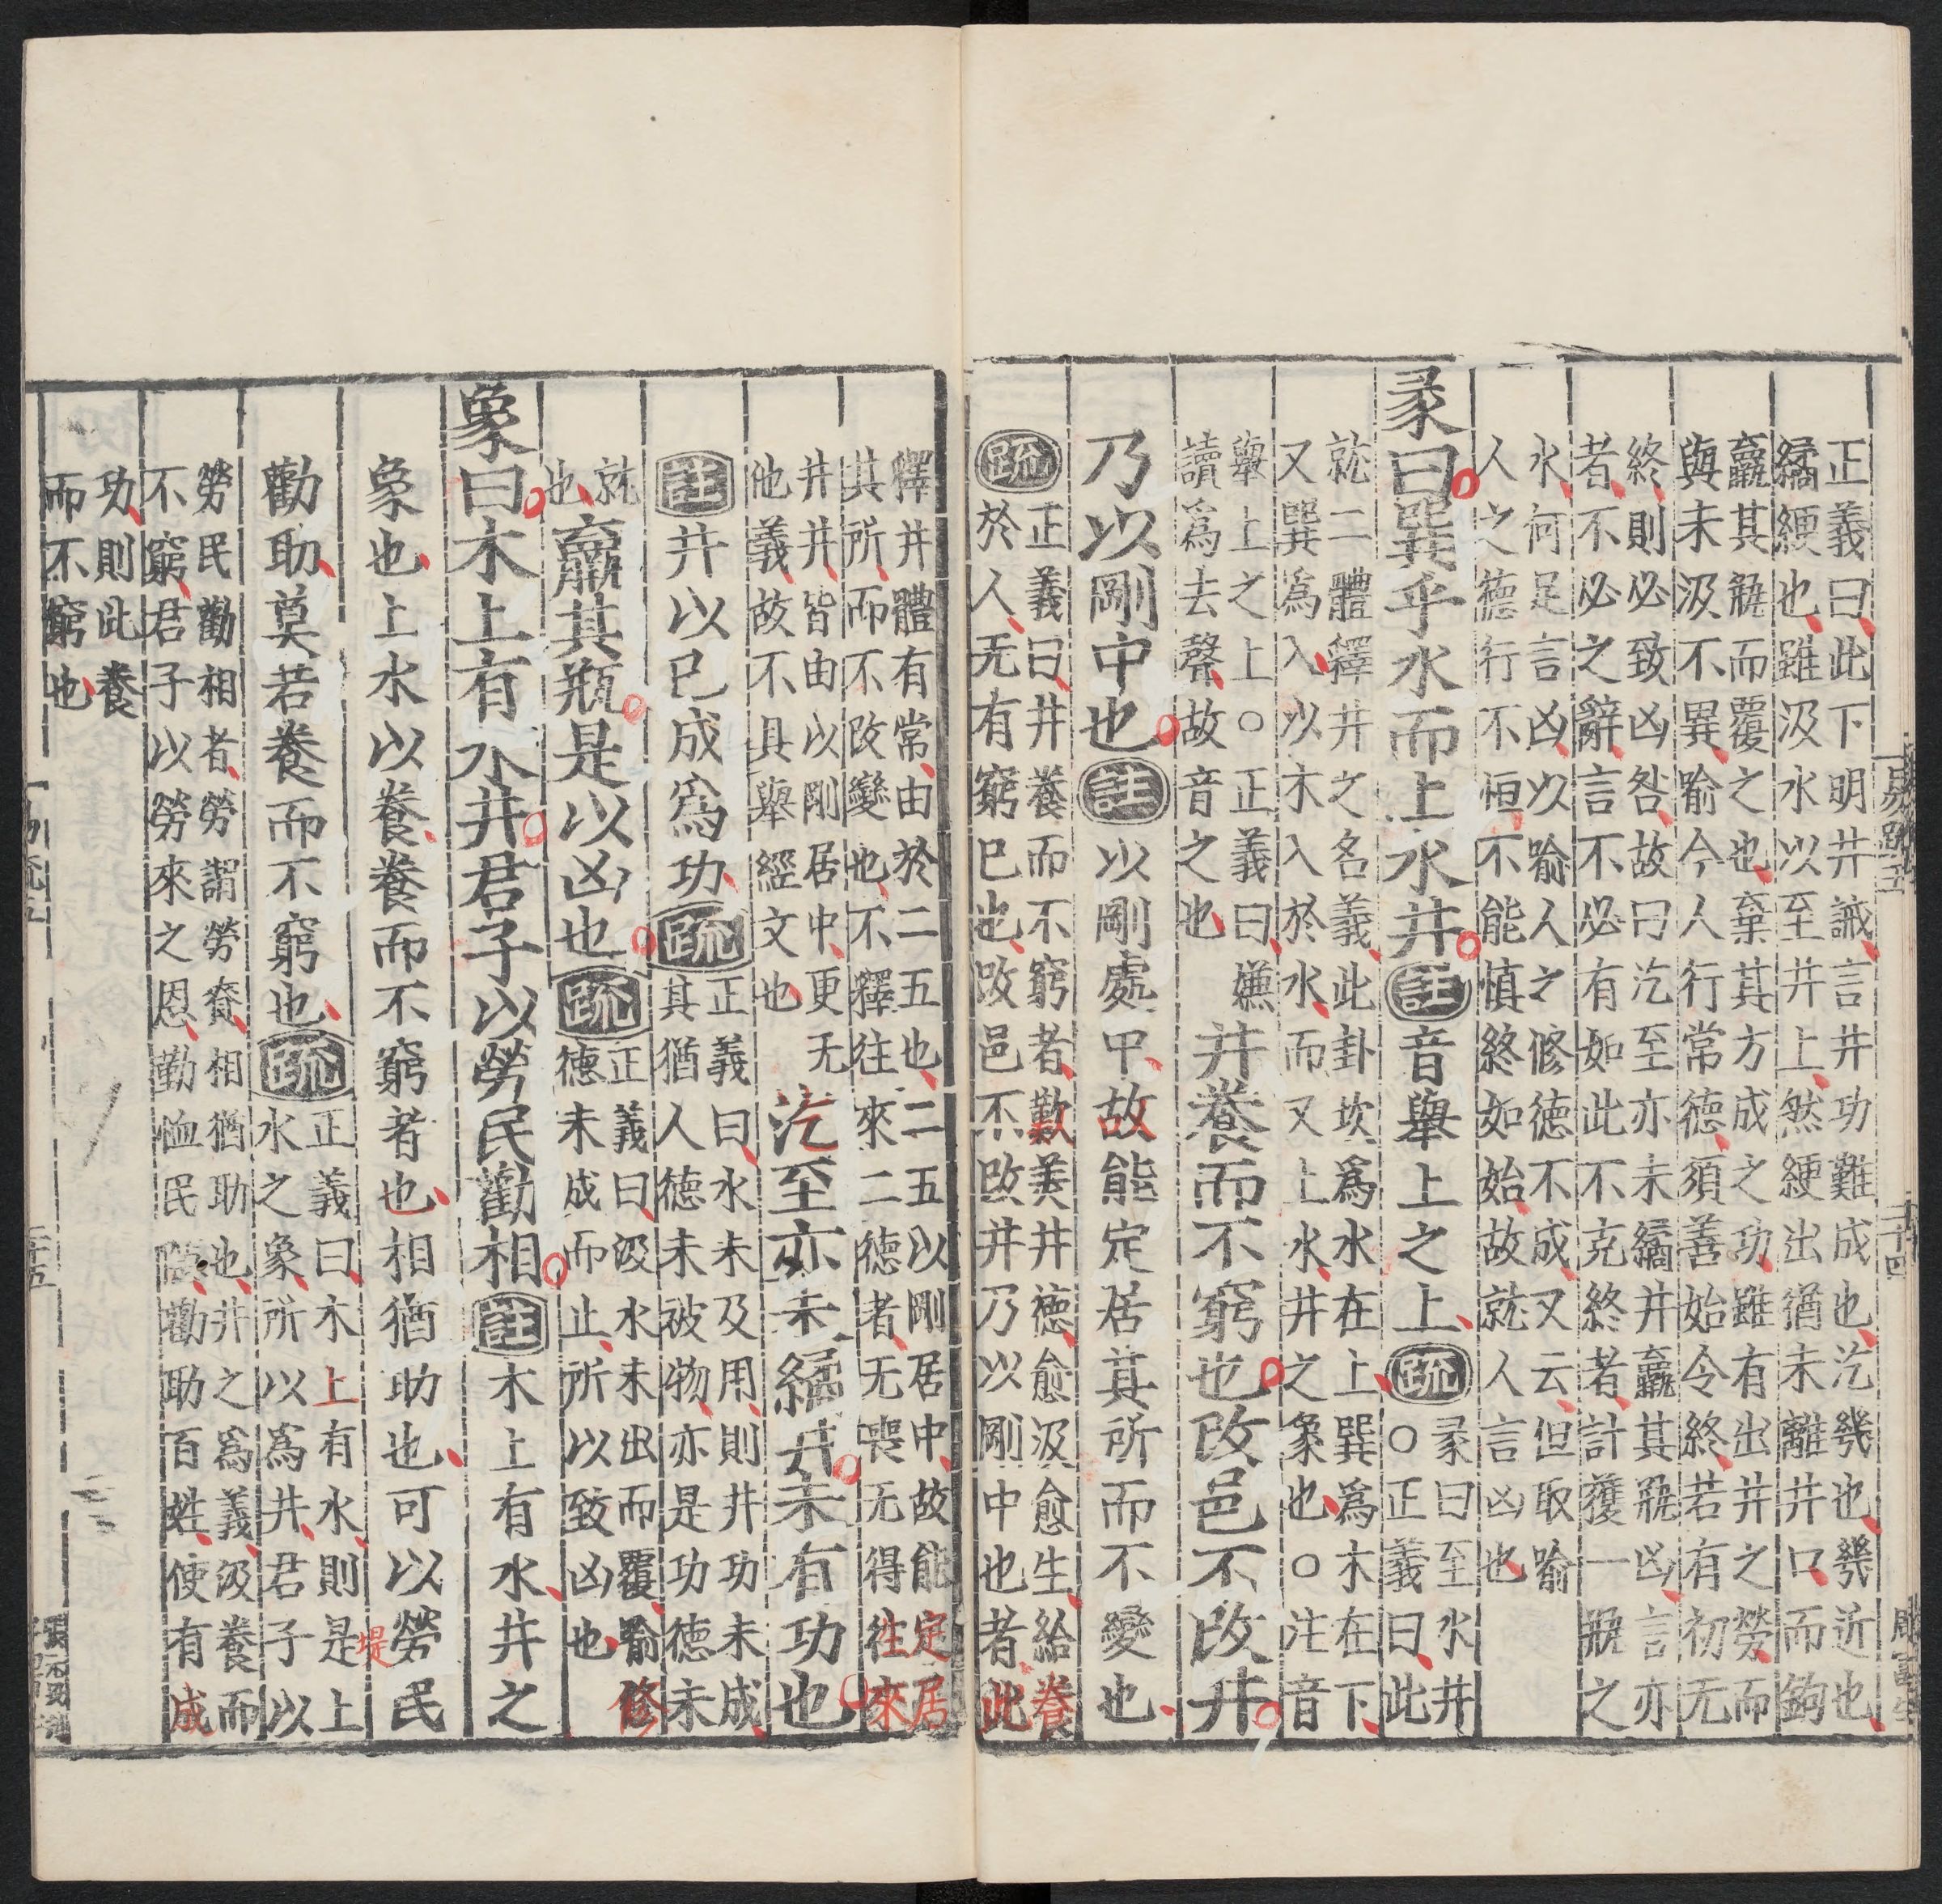 正義曰此下明井誡言井功難成也汔幾也幾近也
繘綆也雖汲水以至井上然綆出猶未離井口而鉤
羸其瓶而覆之也棄其方成之功雖有出井之勞而
與未汲不異喻今人行常德須善始令終若有初无
終則必致凶咎故曰汔至亦未繘井羸其瓶凶言亦
者不必之辭言不必有如此不克終者計獲一瓶之
水何足言凶以喻人之修德不成又云但取喻
人之德行不恒不能慎終如始故就人言凶也
彖曰巽乎水而上水井註音舉上之上疏
彖曰至水井
○正義曰此
就二體釋井之名義此卦坎爲水在上巽爲木在下
又巽爲入以木入於水而又上水井之象也○注音
舉上之上○正義曰嫌
讀爲去聲故音之也
井養而不窮也改邑不改井
乃以剛中也註以剛處中故能定居其所而不變也
疏
正義曰井養而不窮者歎美井德愈汲愈生給養
於人无有窮已也改邑不改井乃以剛中也者此
釋井體有常由於二五也二五以剛居中故能定居
其所而不改變也不釋往來二德者无喪无得往來
井井皆由以剛居中更无
他義故不具舉經文也
汔至亦未繘井未有功也
註井以已成爲功疏
正義曰水未及用則井功未成
其猶人德未被物亦是功德未
就
也
羸其瓶是以凶也疏
正義曰汲水未出而覆喻修
德未成而止所以致凶也
象曰木上有水井君子以勞民勸相註木上有水井之
象也上水以養養而不窮者也相猶助也可以勞民
堤
勸助莫若養而不窮也疏
正義曰木上有水則是上
水之象所以爲井君子以
勞民勸相者勞謂勞賚相猶助也井之爲義汲養而
不窮君子以勞來之恩勤恤民隱勸助百姓使有成
功則此養
而不窮也
易疏五
二十四
易疏五
二十五